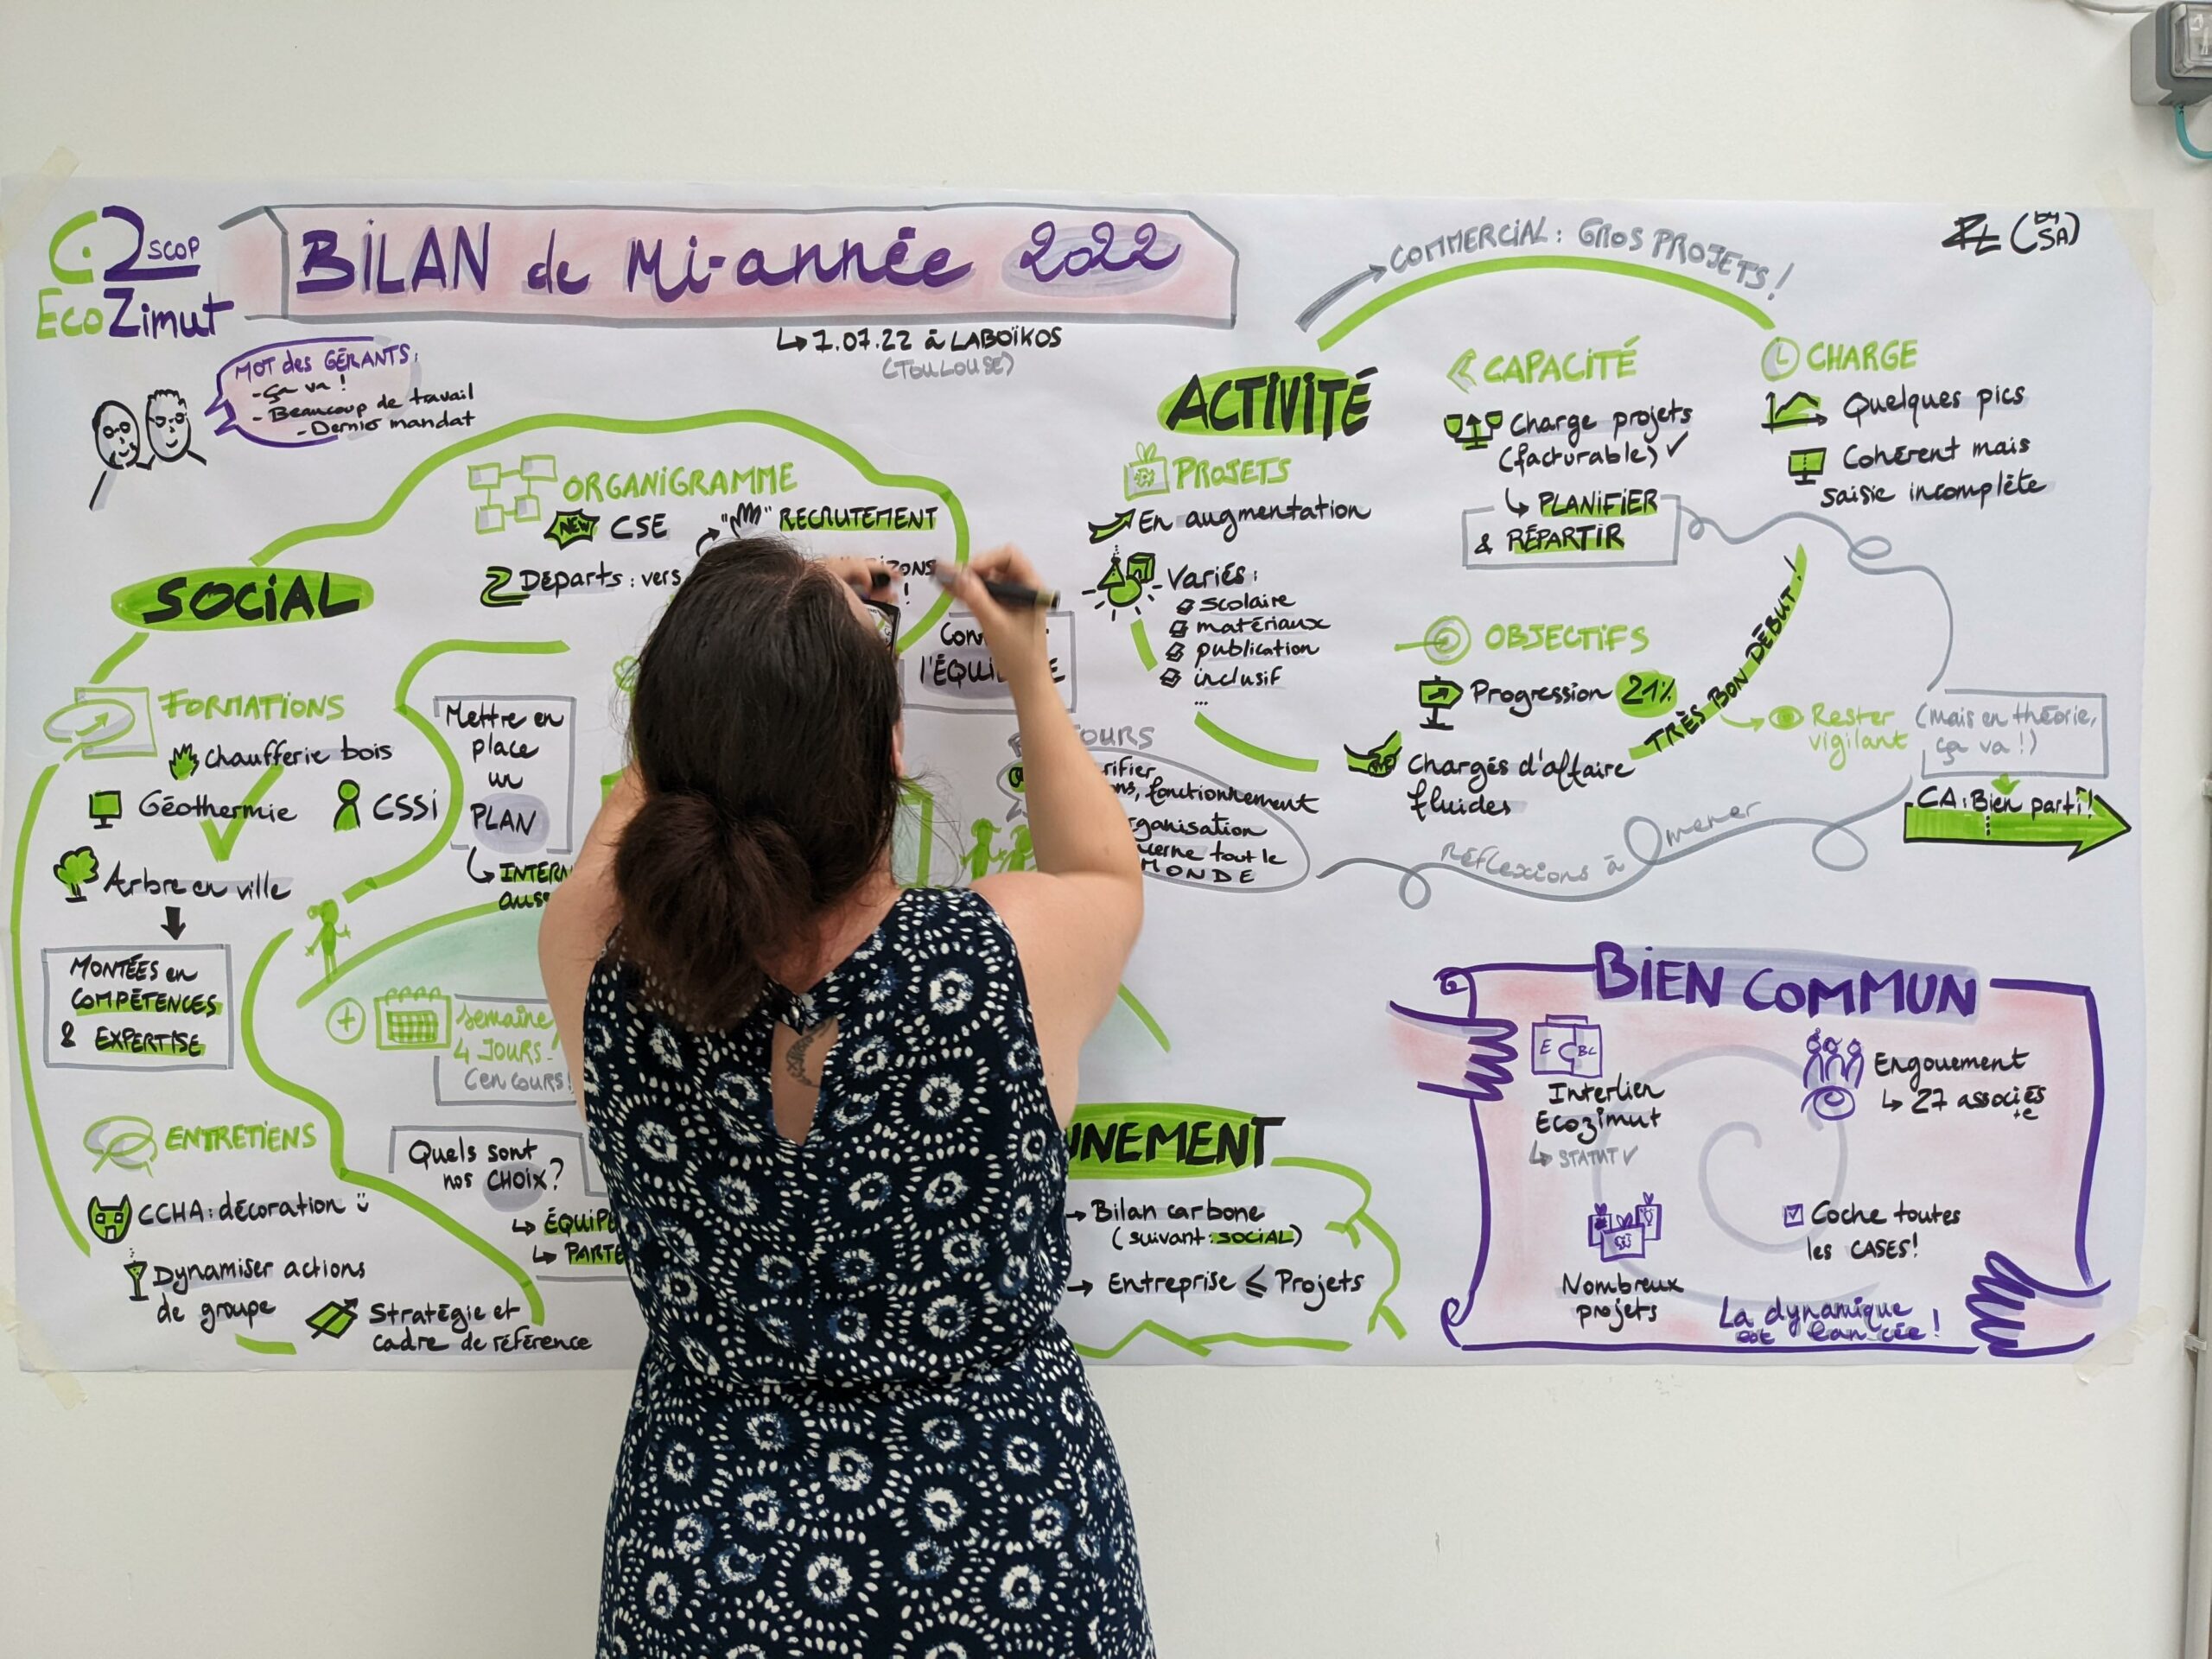 SCOP
EcoZimut
BiLAN de Mi-année 2022
↳ 1.07.22 à LABOÏKOS
(TOULOUSE)
MOT des GÉRANTS:
- Ça va !
- Beaucoup de travail
- Dernier mandat
SOCiAL
ORGANiGRAMME
NEW CSE
"" RECRUTEMENT
Départs : vers
!
FORMATiONS
Chaufferie bois
Géothermie
CSSi
Arbre en ville
MONTÉES en
COMPÉTENCES
& EXPERTISE
Mettre en
place
un
PLAN
+
semaine
4 JOURS
(en cours!
ENTRETIENS
CCHA : décoration
Dynamiser actions
de groupe
Stratégie et
cadre de référence
Quels sont
nos CHOiX?
fonctionnement
tout le
MONDE
réflexions à mener
ACTIVITÉ
COMMERCiAL : GROS PROJETS !
PROJETS
En augmentation
Variés :
scolaire
matériaux
publication
inclusif
...
CAPACiTÉ
Charge projets
(facturable) ✓
↳ PLANiFIER
& RÉPARTiR
CHARGE
Quelques pics
Cohérent mais
saisie incomplète
OBJECTiFS
Progression 21%
Chargés d'affaire
fluides
TRÈS BON DÉBUT !
Rester
vigilant
(mais en théorie,
ça va !)
CA : Bien parti !
→ Bilan carbone
(suivant : SOCiAL)
→ Entreprise ⩽ Projets
BiEN COMMUN
E C BC
Interlien
Ecozimut
↳ STATUT ✓
Engouement
↳ 27 associés
+e
Nombreux
projets
Coche toutes
les CASES!
La dynamique
est lancée !
(by
SA)